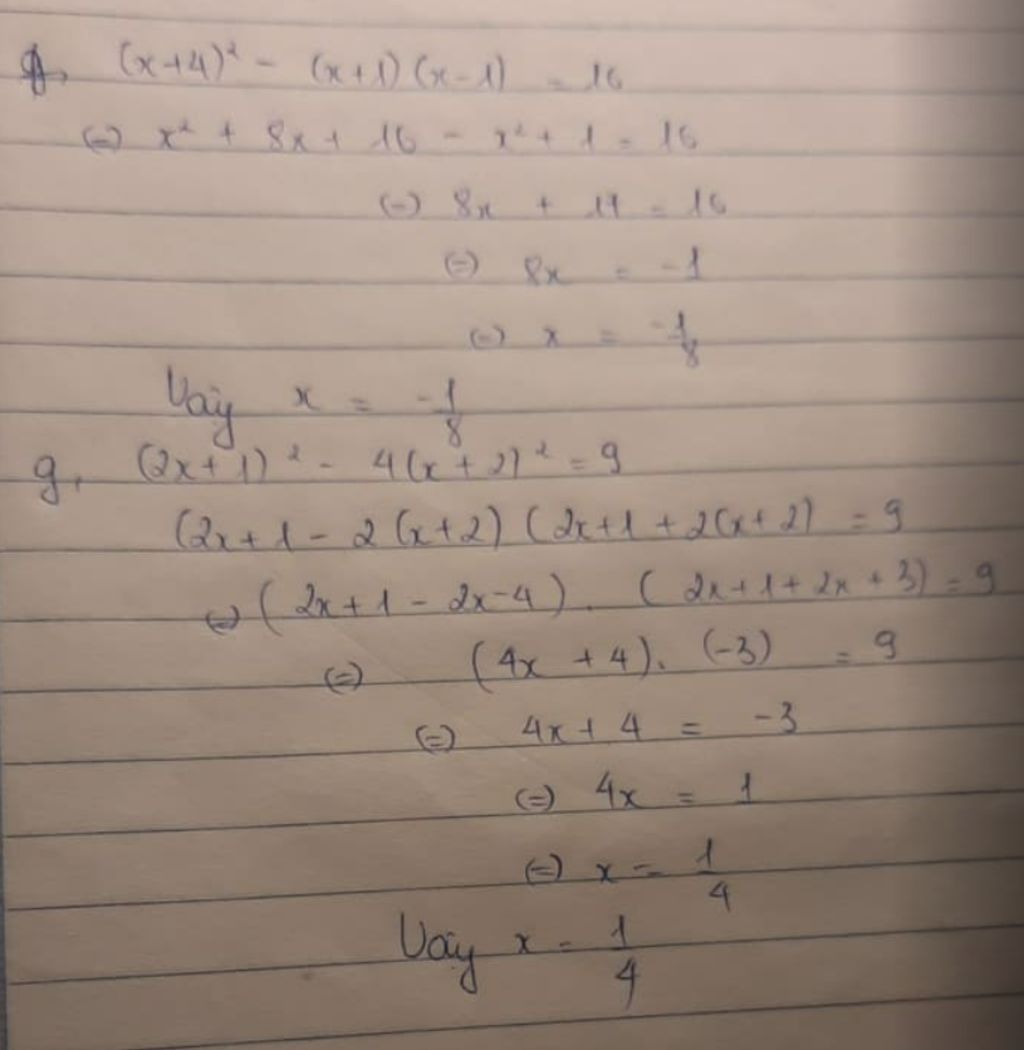 f, (x+4)² - (x+1)(x-1) = 16
(=) x² + 8x + 16 - x² + 1 = 16
(=) 8x + 17 = 16
(=) 8x = -1
(=) x = -1/8
Vậy x = -1/8
g, (2x+1)² - 4(x+2)² = 9
(2x+1 - 2(x+2) (2x+1 + 2(x+2) = 9
(=) (2x+1 - 2x-4). (2x+1+2x+3) = 9
(=) (4x + 4). (-3) = 9
(=) 4x + 4 = -3
(=) 4x = 1
(=) x = 1/4
Vậy x = 1/4